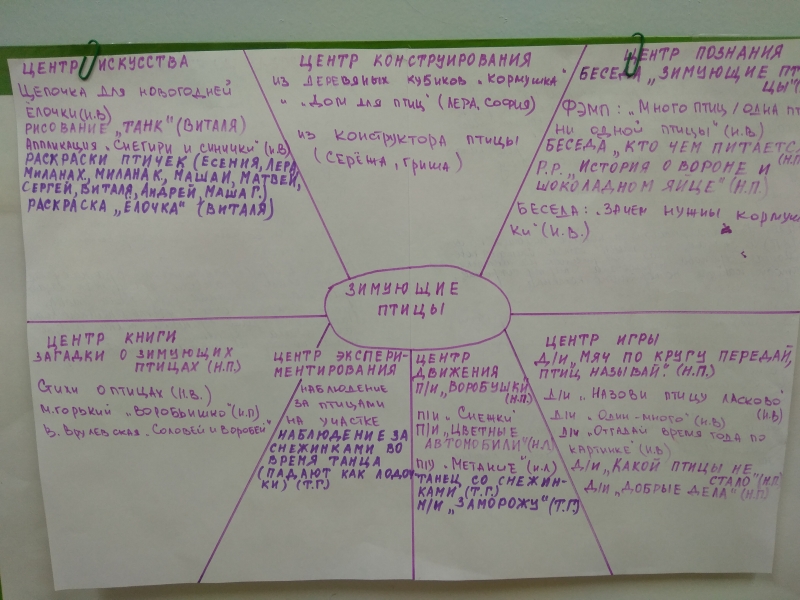 ЦЕНТР ИСКУССТВА
ЦЕПОЧКА ДЛЯ НОВОГОДНЕЙ
ЁЛОЧКИ (И.В)
РИСОВАНИЕ „ТАНК" (ВИТАЛЯ)
АППЛИКАЦИЯ „СНЕГИРИ И СИНИЧКИ" (И.В)
РАСКРАСКИ ПТИЧЕК (ЕСЕНИЯ, ЛЕРА,
МИЛАНАХ, МИЛАНАК, МАШАИ, МАТВЕЙ,
СЕРГЕЙ, ВИТАЛЯ, АНДРЕЙ, МАША Г.)
РАСКРАСКА „ЁЛОЧКА" (ВИТАЛЯ)
ЦЕНТР КОНСТРУИРОВАНИЯ
ИЗ ДЕРЕВЯНЫХ КУБИКОВ „КОРМУШКА"
„ДОМ ДЛЯ ПТИЦ" (ЛЕРА, СОФИЯ)
ИЗ КОНСТРУКТОРА ПТИЦЫ
(СЕРЁЖА, ГРИША)
ЦЕНТР ПОЗНАНИЯ
БЕСЕДА „ЗИМУЮЩИЕ ПТ
ЦЫ"
ФЭМП: „МНОГО ПТИЦ / ОДНА ПТ
НИ ОДНОЙ ПТИЦЫ" (И.В)
БЕСЕДА „КТО ЧЕМ ПИТАЕТСЯ
(Н.П)
Р.Р. „ИСТОРИЯ О ВОРОНЕ И
ШОКОЛАДНОМ ЯЙЦЕ" (Н.П.)
БЕСЕДА: „ЗАЧЕМ НУЖНЫ КОРМУШ
КИ" (И.В.)
ЗИМУЮЩИЕ
ПТИЦЫ
ЦЕНТР КНИГИ
ЗАГАДКИ О ЗИМУЮЩИХ
ПТИЦАХ (Н.П)
СТИХИ О ПТИЦАХ (И.В.)
М.ГОРЬКИЙ „ВОРОБЬИШКО" (И.П)
„СОЛОВЕЙ И ВОРОБЕЙ"
ЦЕНТР ЭКСПЕРИ-
МЕНТИРОВАНИЯ
НАБЛЮДЕНИЕ
ЗА ПТИЦАМИ
НА УЧАСТКЕ
НАБЛЮДЕНИЕ ЗА
СНЕЖИНКАМИ ВО
ВРЕМЯ ТАНЦА
(ПАДАЮТ КАК ЛОДОЧ-
КИ) (Т.Г.)
ЦЕНТР
ДВИЖЕНИЯ
П/И „ВОРОБУШКИ"
(Н.П)
П/И „СНЕЖКИ"
П/И „ЦВЕТНЫЕ
АВТОМОБИЛИ" (Н.П)
ТАНЕЦ СО СНЕЖИН-
КАМИ" (Т.Г.)
М/И „ЗАМОРОЖУ" (Т.Г.)
ЦЕНТР ИГРЫ
Д/И „МЯЧ ПО КРУГУ ПЕРЕДАЙ,
ПТИЦ НАЗЫВАЙ." (Н.П.)
Д/И „НАЗОВИ ПТИЦУ ЛАСКОВО"
(И.В)
Д/И „ОДИН-МНОГО" (И.В)
Д/И „ОТГАДАЙ ВРЕМЯ ГОДА ПО
КАРТИНКЕ" (И.В)
Д/И „КАКОЙ ПТИЦЫ НЕ
СТАЛО" (Н.П)
Д/И „ДОБРЫЕ ДЕЛА" (Н.П)